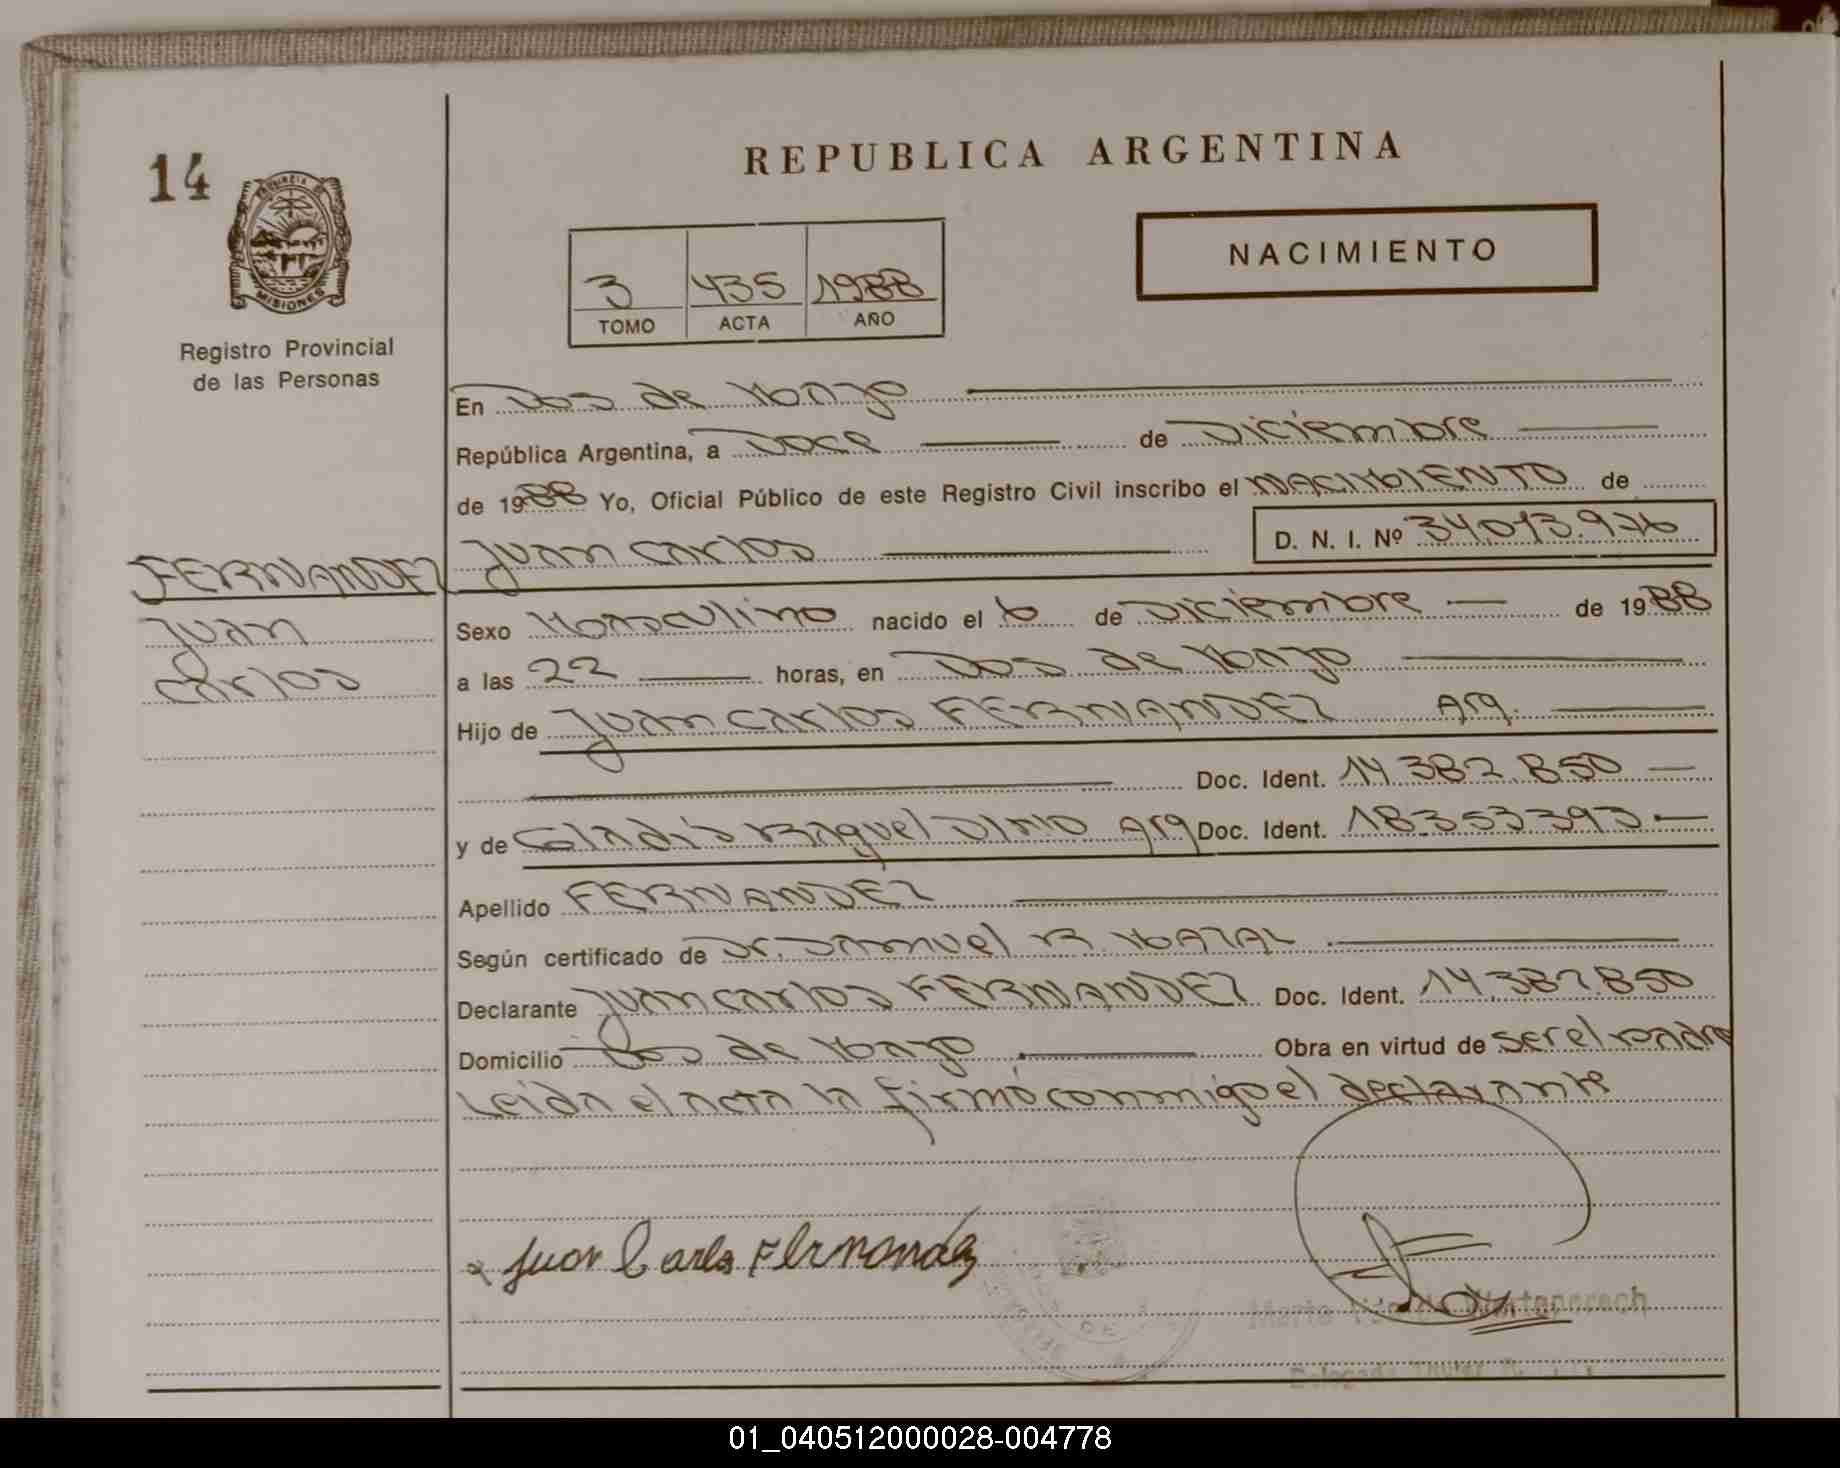 14
REPUBLICA ARGENTINA
PROVINCIA DE
MISIONES
Registro Provincial
de las Personas
3 435 1988
TOMO ACTA AÑO
NACIMIENTO
En Dos de Mayo
República Argentina, a Doce de Diciembre
de 1988 Yo, Oficial Público de este Registro Civil inscribo el NACIMIENTO de
FERNANDEZ Juan Carlos D. N. I. Nº 34.013.976
Juan
Carlos
Sexo Masculino nacido el 6 de Diciembre de 1988
a las 22 horas, en Dos de Mayo
Hijo de Juan Carlos FERNANDEZ Arg.
Doc. Ident. 14.382.850
y de Gladis Raquel Arg Doc. Ident. 18353393
Apellido FERNANDEZ
Según certificado de Dr. Samuel R MAZAL
Declarante Juan Carlos FERNANDEZ Doc. Ident. 14.382.850
Domicilio Dos de Mayo Obra en virtud de ser el padre
Leida el acta la firmó conmigo el declarante
Juan Carlos Fernandez
01_040512000028-004778